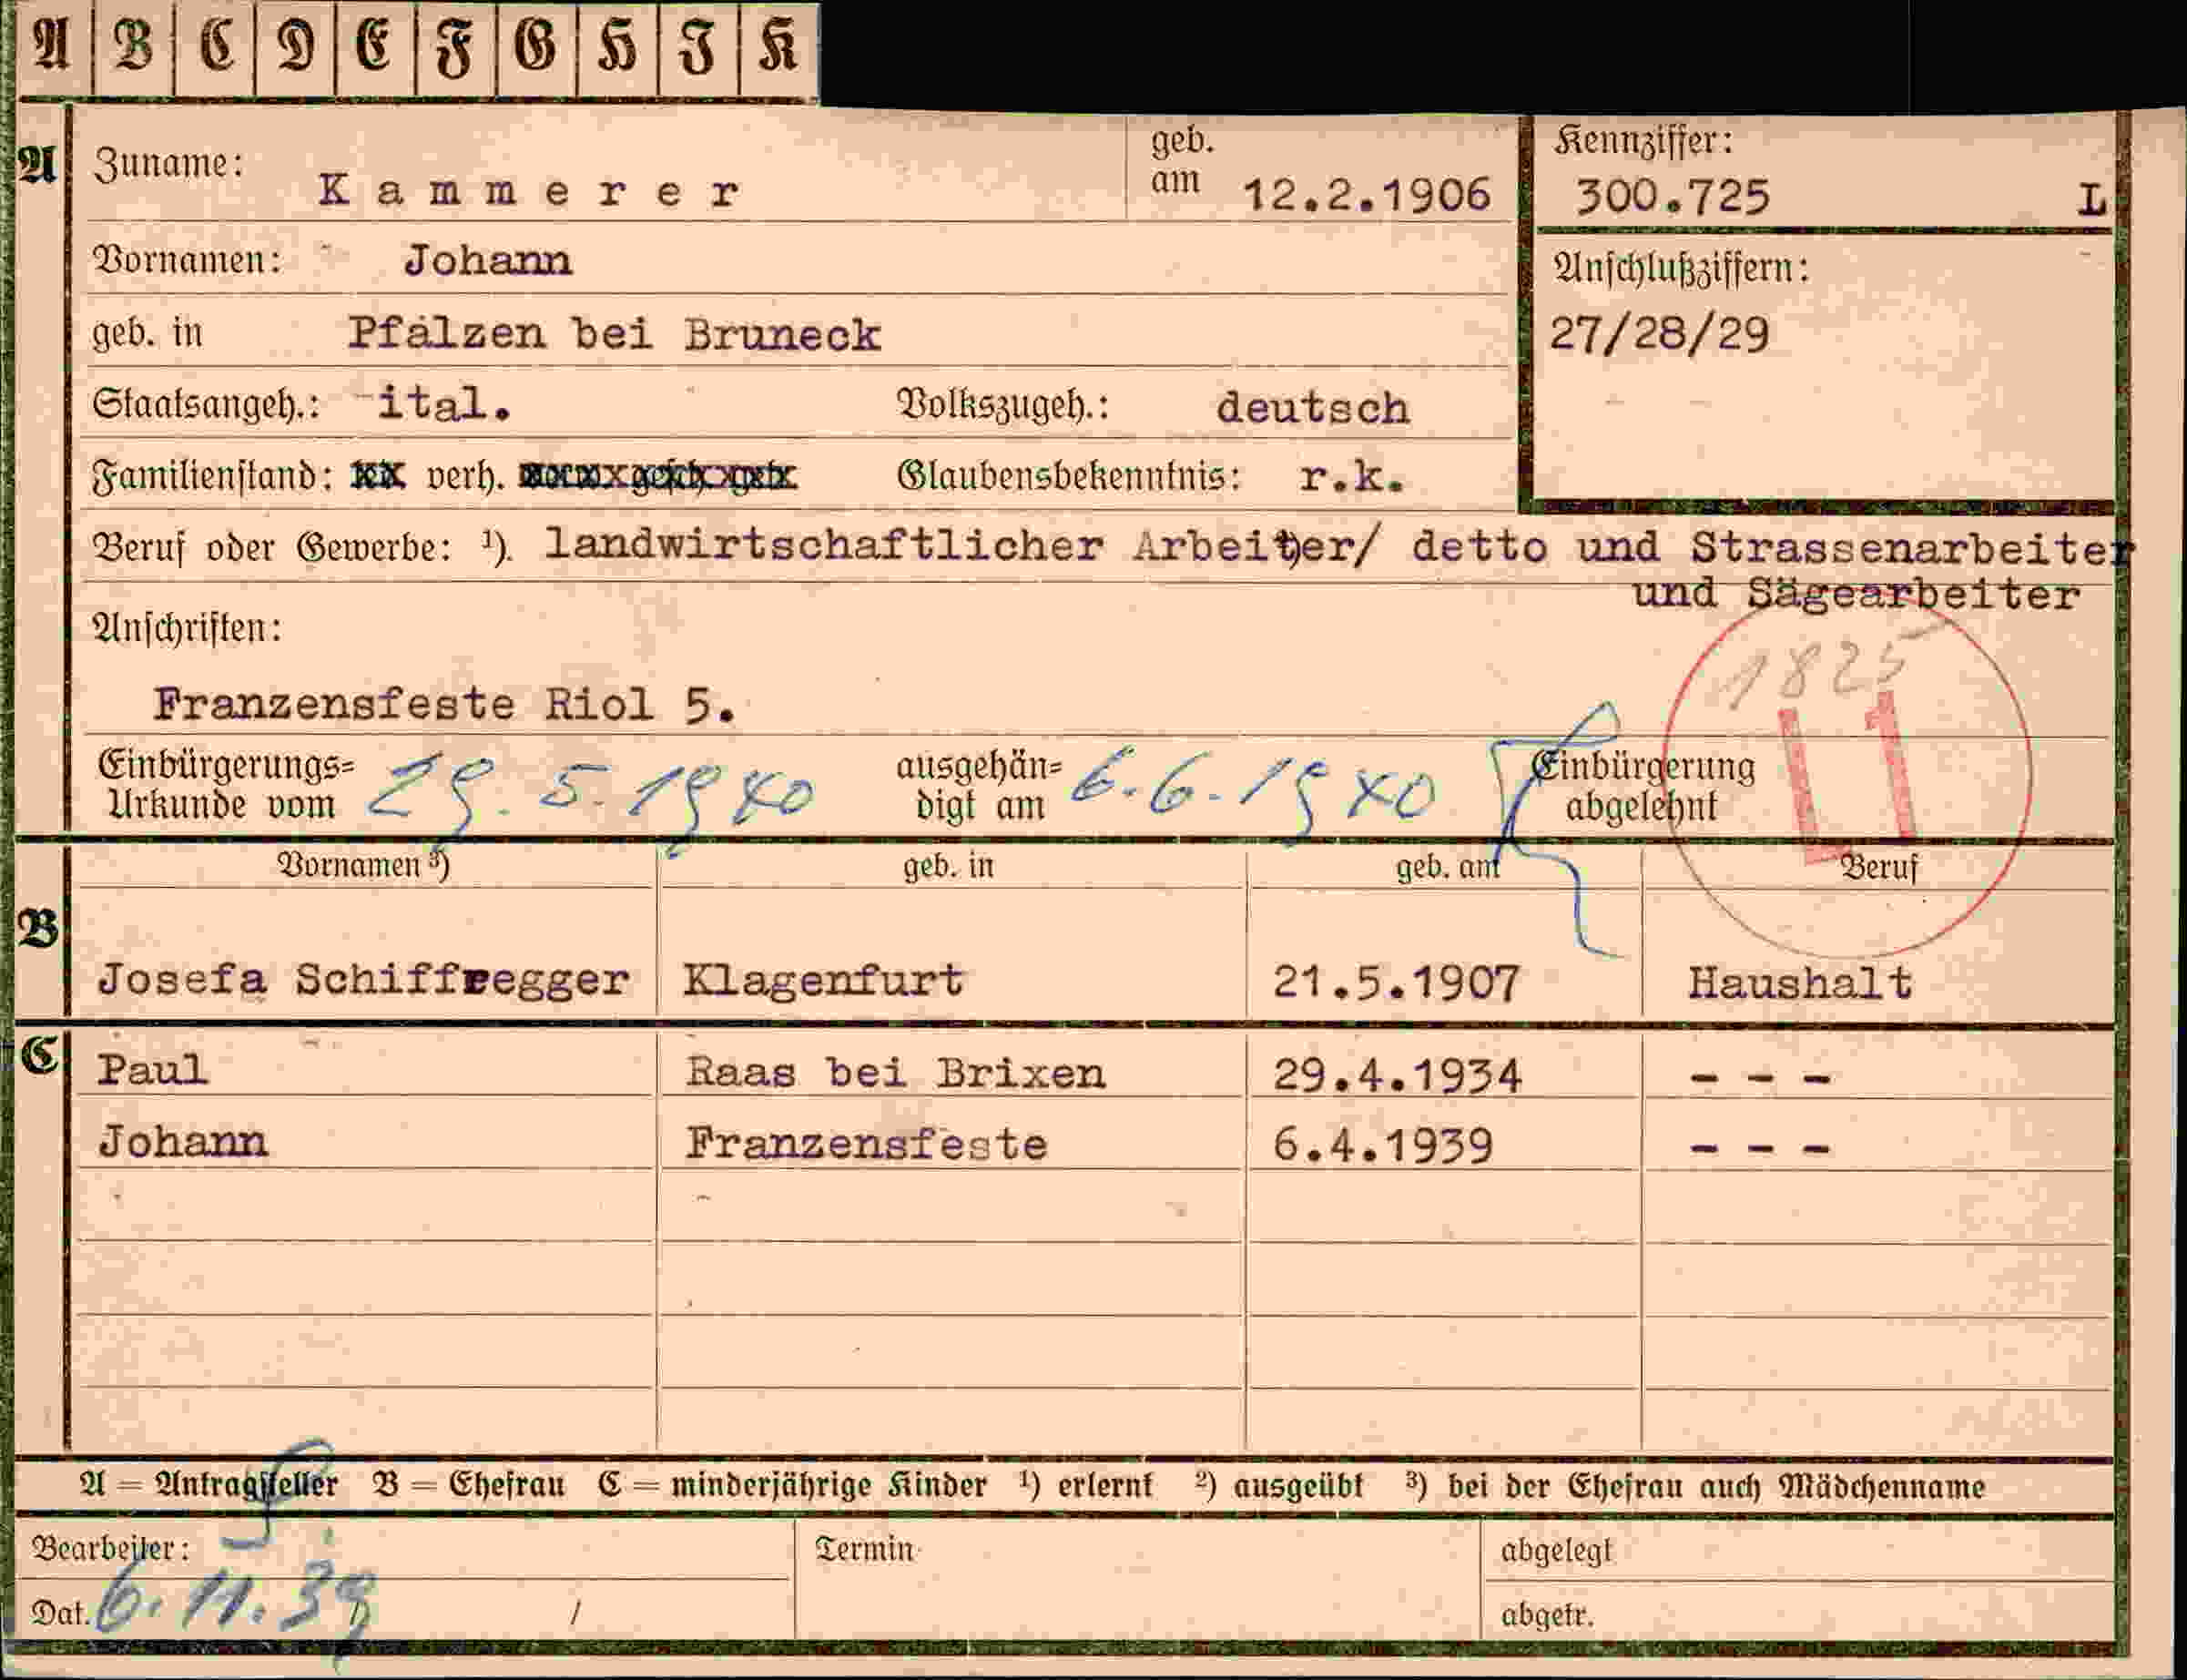 A B C D E F G H I K
A Zuname: Kammerer geb. am 12.2.1906 Kennziffer: 300.725 L
Vornamen: Johann Anschlußziffern:
geb. in Pfalzen bei Bruneck 27/28/29
Staatsangeh.: ital. Volkszugeh.: deutsch
Familienstand: verh. Glaubensbekenntnis: r.k.
Beruf oder Gewerbe: ¹). landwirtschaftlicher Arbeiter/ detto und Strassenarbeiter
und Sägearbeiter
Anschriften:
1825
Franzensfeste Riol 5.
L1
Einbürgerungs= Urkunde vom 29.5.1940 ausgehän= digt am 6.6.1940 Einbürgerung abgelehnt
Vornamen ³) geb. in geb. am Beruf
B Josefa Schiffregger Klagenfurt 21.5.1907 Haushalt
C Paul Raas bei Brixen 29.4.1934 - - -
Johann Franzensfeste 6.4.1939 - - -
A = Antragsteller B = Ehefrau C = minderjährige Kinder ¹) erlernt ²) ausgeübt ³) bei der Ehefrau auch Mädchenname
Bearbeiter: Termin abgelegt
Dat. 6.11.39 / abgetr.